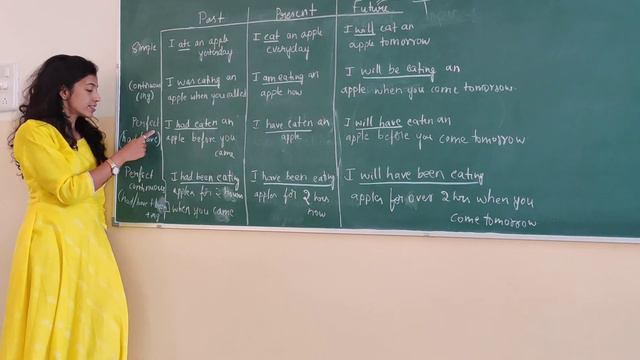 Past Present Future
Simple
I ate an apple
yesterday
I eat an apple
everyday
I will eat an
apple tomorrow
(continuous
(ing)
I was eating an
apple when you called
I am eating an
apple now
I will be eating an
apple when you come tomorrow.
Perfect
I had eaten an
apple before you
came
I have eaten an
apple
I will have eaten an
apple before you come tomorrow
Perfect
continuous
(had/have
ing
I had been eating
apples for 2 hours
when you came
I have been eating
apples for 2 hrs
now
I will have been eating
apples for over 2 hrs when you
come tomorrow